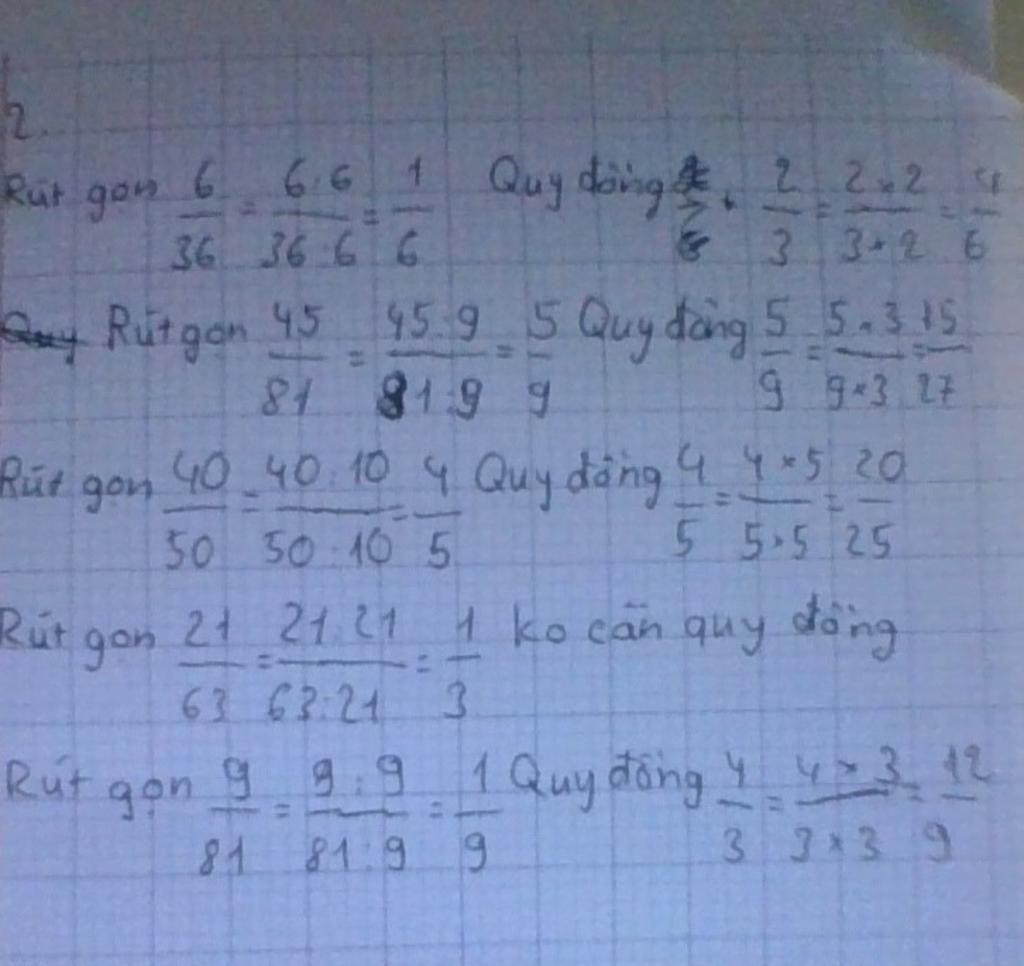 2.
Rút gọn 6/36 = 6:6/36:6 = 1/6 Quy đồng 2/3 = 2×2/3×2 = 4/6
Rút gọn 45/81 = 45:9/81:9 = 5/9 Quy đồng 5/9 = 5×3/9×3 = 15/27
Rút gọn 40/50 = 40:10/50:10 = 4/5 Quy đồng 4/5 = 4×5/5×5 = 20/25
Rút gọn 21/63 = 21:21/63:21 = 1/3 ko cần quy đồng
Rút gọn 9/81 = 9:9/81:9 = 1/9 Quy đồng 4/3 = 4×3/3×3 = 12/9